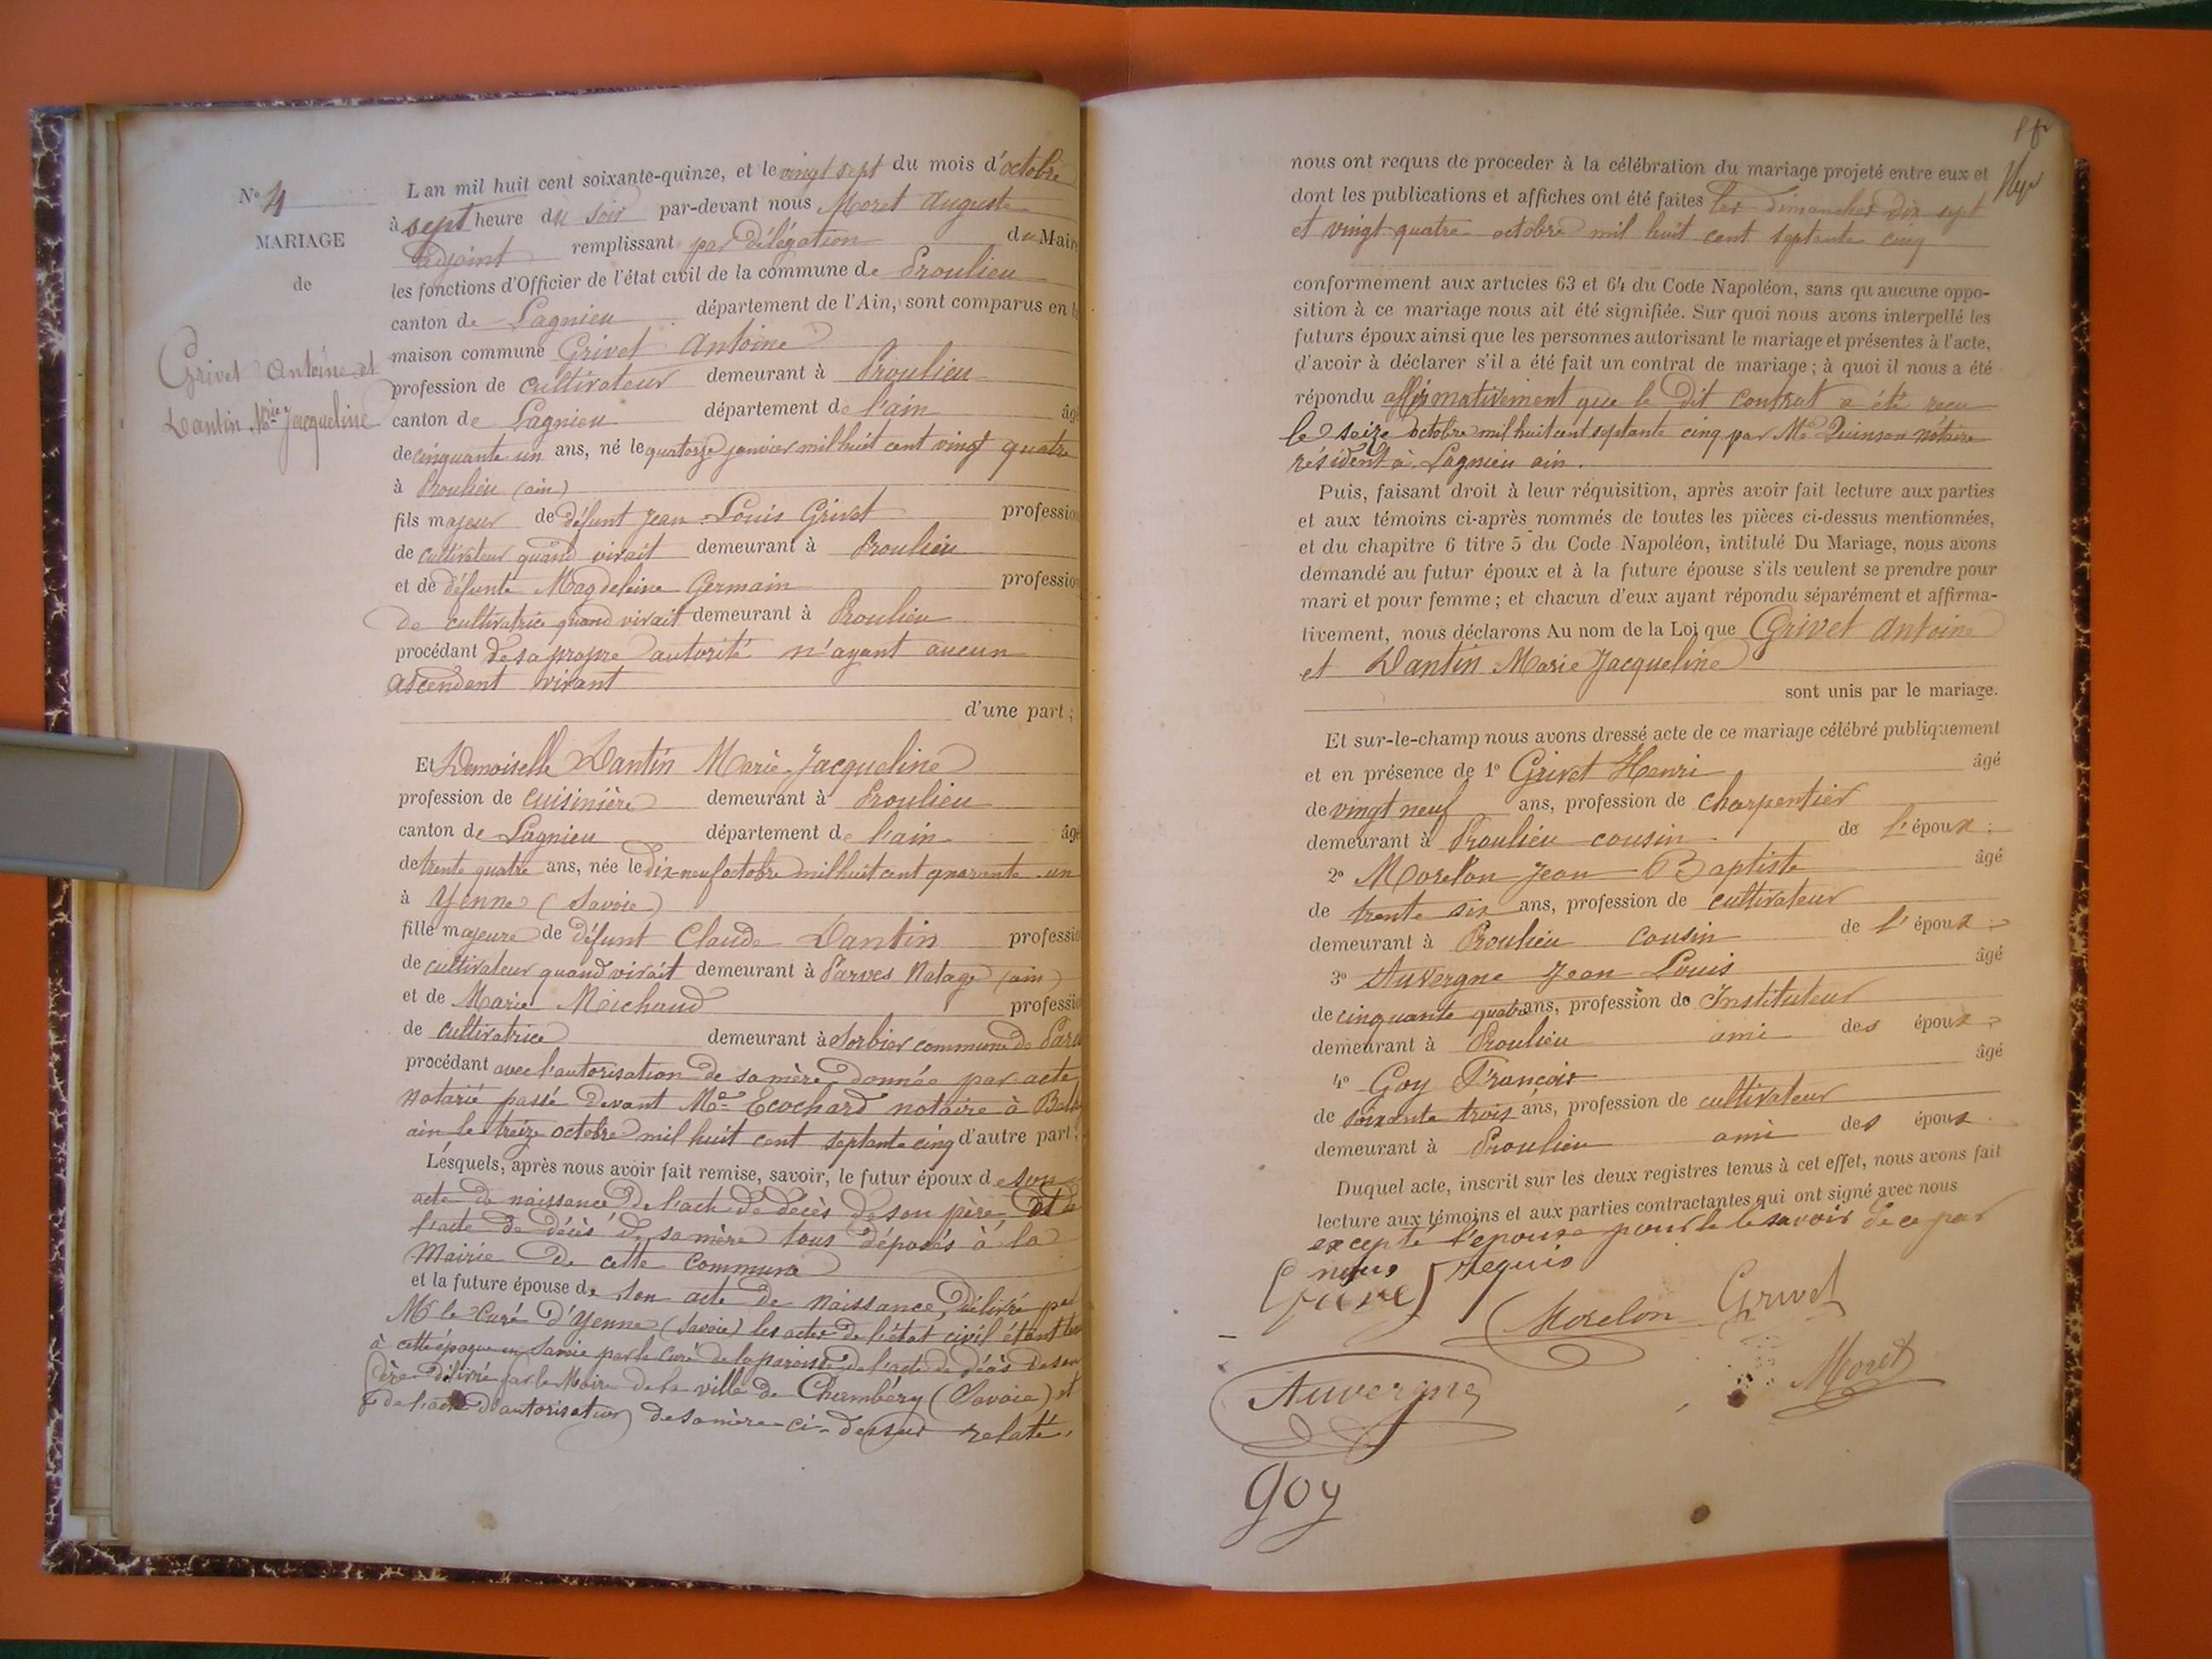 N° 4
MARIAGE
de
Grivet Antoine et
Dantin Mie Jacqueline
L'an mil huit cent soixante-quinze, et le vingt sept du mois d'octobre
à sept heure du soir par-devant nous Moret Auguste
adjoint remplissant par délégation du Maire
les fonctions d'Officier de l'état civil de la commune de Proulieu
canton de Lagnieu département de l'Ain, sont comparus en la
maison commune Grivet Antoine
profession de cultivateur demeurant à Proulieu
canton de Lagnieu département de l'ain âgé
de cinquante un ans, né le quatorze janvier mil huit cent vingt quatre
à Proulieu (ain)
fils majeur de défunt Jean Louis Grivet profession
de cultivateur quand vivait demeurant à Proulieu
et de défunte Magdeleine Germain profession
de cultivatrice quand vivait demeurant à Proulieu
procédant de sa propre autorité n'ayant aucun
ascendent vivant
d'une part ;
Et Demoiselle Dantin Marie Jacqueline
profession de cuisinière demeurant à Proulieu
canton de Lagnieu département de l'ain âgé
de trente quatre ans, née le dix-neuf octobre mil huit cent quarante un
à Yenne (Savoie)
fille majeure de défunt Claude Dantin professio
de cultivateur quand vivait demeurant à Parves Natage (ain)
et de Marie Michaud professio
de cultivatrice demeurant à Sorbier commune de Parv
procédant avec l'autorisation de sa mère donnée par acte
notarié passé devant Me Ecochard notaire à Bell
ain le treize octobre mil huit cent septante cinq d'autre part ;
Lesquels, après nous avoir fait remise, savoir, le futur époux de son
acte de naissance de l'acte de décès de son père et de
l'acte de décès de sa mère tous déposés à la
Mairie de cette commune
et la future épouse de son acte de naissance, délivré par
Mr le Curé d'Yenne (Savoie) les actes de l'état civil étant
à cette époque en Savoie par le Curé de la paroisse de l'acte de décès de son
père délivré par le Maire de la ville de Chambéry (Savoie) et
de l'acte d'autorisation de sa mère ci-dessus relaté.
nous ont requis de proceder à la célébration du mariage projeté entre eux et
dont les publications et affiches ont été faites les dimanches dix sept
et vingt quatre octobre mil huit cent septante cinq
conformement aux articles 63 et 64 du Code Napoléon, sans qu'aucune oppo-
sition à ce mariage nous ait été signifiée. Sur quoi nous avons interpellé les
futurs époux ainsi que les personnes autorisant le mariage et présentes à l'acte,
d'avoir à déclarer s'il a été fait un contrat de mariage ; à quoi il nous a été
répondu affirmativement que le dit contrat a été reçu
le seize octobre mil huit cent septante cinq par Me Quinson notaire
résident à Lagnieu ain.
Puis, faisant droit à leur réquisition, après avoir fait lecture aux parties
et aux témoins ci-après nommés de toutes les pièces ci-dessus mentionnées,
et du chapitre 6 titre 5 du Code Napoléon, intitulé Du Mariage, nous avons
demandé au futur époux et à la future épouse s'ils veulent se prendre pour
mari et pour femme ; et chacun d'eux ayant répondu séparément et affirma-
tivement, nous déclarons Au nom de la Loi que Grivet Antoine
et Dantin Marie Jacqueline
sont unis par le mariage.
Et sur-le-champ nous avons dressé acte de ce mariage célébré publiquement
et en présence de 1° Grivet Henri âgé
de vingt neuf ans, profession de charpentier
demeurant à Proulieu cousin de l'époux ;
2° Morelon Jean Baptiste âgé
de trente six ans, profession de cultivateur
demeurant à Proulieu cousin de l'époux ;
3° Auvergne Jean Louis âgé
de cinquante quatre ans, profession de Instituteur
demeurant à Proulieu ami des époux ;
4° Goy François âgé
de soixante trois ans, profession de cultivateur
demeurant à Proulieu ami des époux
Duquel acte, inscrit sur les deux registres tenus à cet effet, nous avons fait
lecture aux témoins et aux parties contractantes qui ont signé avec nous
excepté l'épouse pour le savoir de ce par
nous requis
Morelon Grivet
Auvergne Moret
Goy